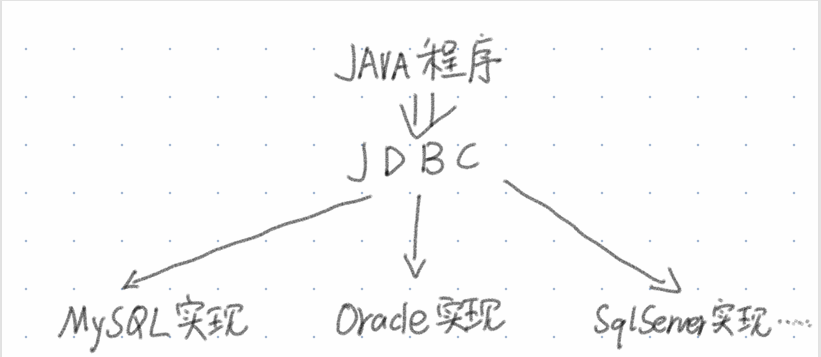 JAVA程序
JDBC
MySQL实现 Oracle实现 SqlServer实现……